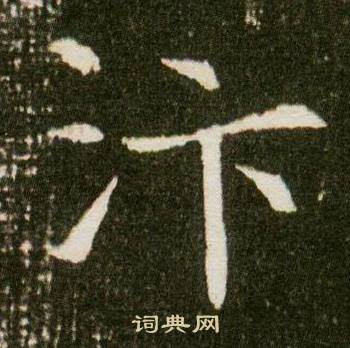 汴
词典网